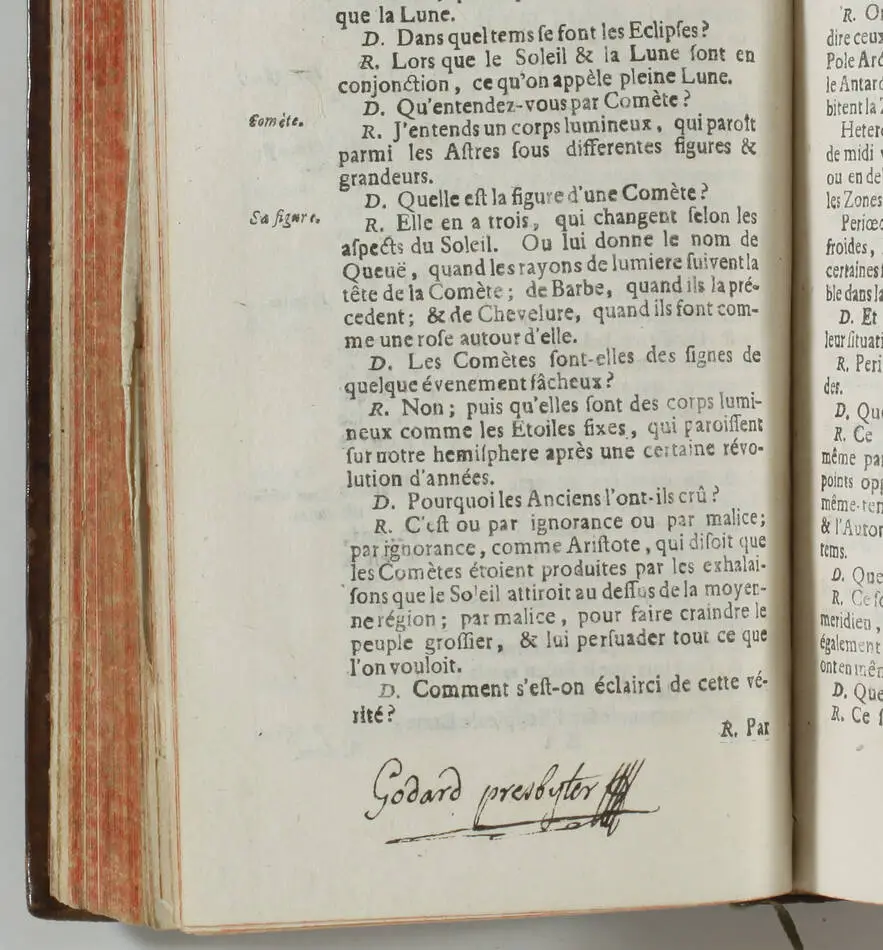 que la Lune.
D. Dans quel tems se font les Eclipses?
R. Lors que le Soleil & la Lune sont en
conjonction, ce qu'on appèle pleine Lune.
D. Qu'entendez-vous par Comète?
Comète.
R. J'entends un corps lumineux, qui paroît
parmi les Astres sous differentes figures &
grandeurs.
D. Quelle est la figure d'une Comète?
Sa figure.
R. Elle en a trois, qui changent selon les
aspects du Soleil. Ou lui donne le nom de
Queuë, quand les rayons de lumiere suivent la
tête de la Comète; de Barbe, quand ils la pré-
cedent; & de Chevelure, quand ils sont com-
me une rose autour d'elle.
D. Les Comètes sont-elles des signes de
quelque évenement fâcheux?
R. Non; puis qu'elles sont des corps lumi-
neux comme les Etoiles fixes, qui paroissent
sur notre hemisphere après une certaine révo-
lution d'années.
D. Pourquoi les Anciens l'ont-ils crû?
R. C'est ou par ignorance ou par malice;
par ignorance, comme Aristote, qui disoit que
les Comètes étoient produites par les exhalai-
sons que le Soleil attiroit au dessus de la moyen-
ne région; par malice, pour faire craindre le
peuple grossier, & lui persuader tout ce que
l'on vouloit.
D. Comment s'est-on éclairci de cette vé-
rité?
R. Par
Godard presbyter
R.
dire ceux
Pole
le
bitent la
de midi
ou en de
les Zones
froides,
certaines
ble dans la
D. Et
leur situati
R. Peri
der.
D. Que
R. Ce
même par
points opp
même-tem
& l'Autom
tems.
D. Que
R. Ce so
meridien,
également
ont en mêm
D. Que
R. Ce s